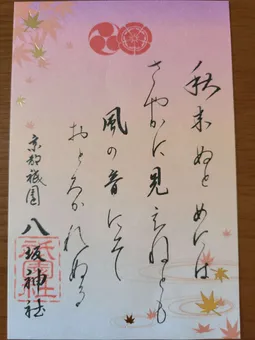 秋来ぬとめには
さやかに見えねども
風の音にそ
おとろかれぬる
京都祇園
八坂神社